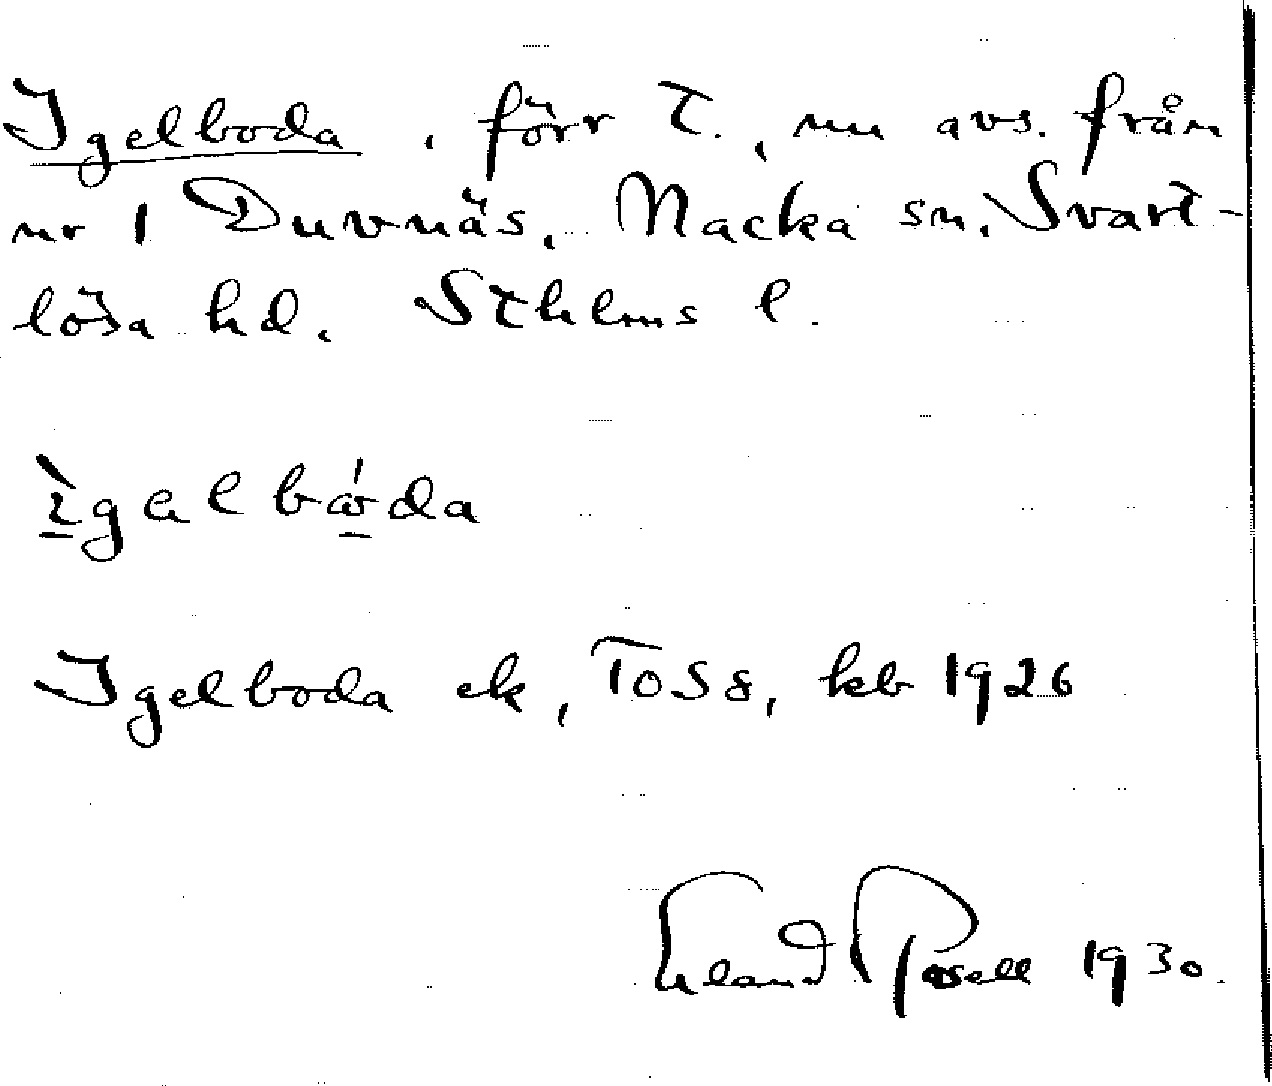 Igelboda, förr T., nu avs. från
nr 1 Duvnäs, Nacka sn. Svart-
lösa hd. Sthlms l.
ìgalbǿda
Igelboda ek, TOS 8, kb 1926
Erland Rosell 1930.